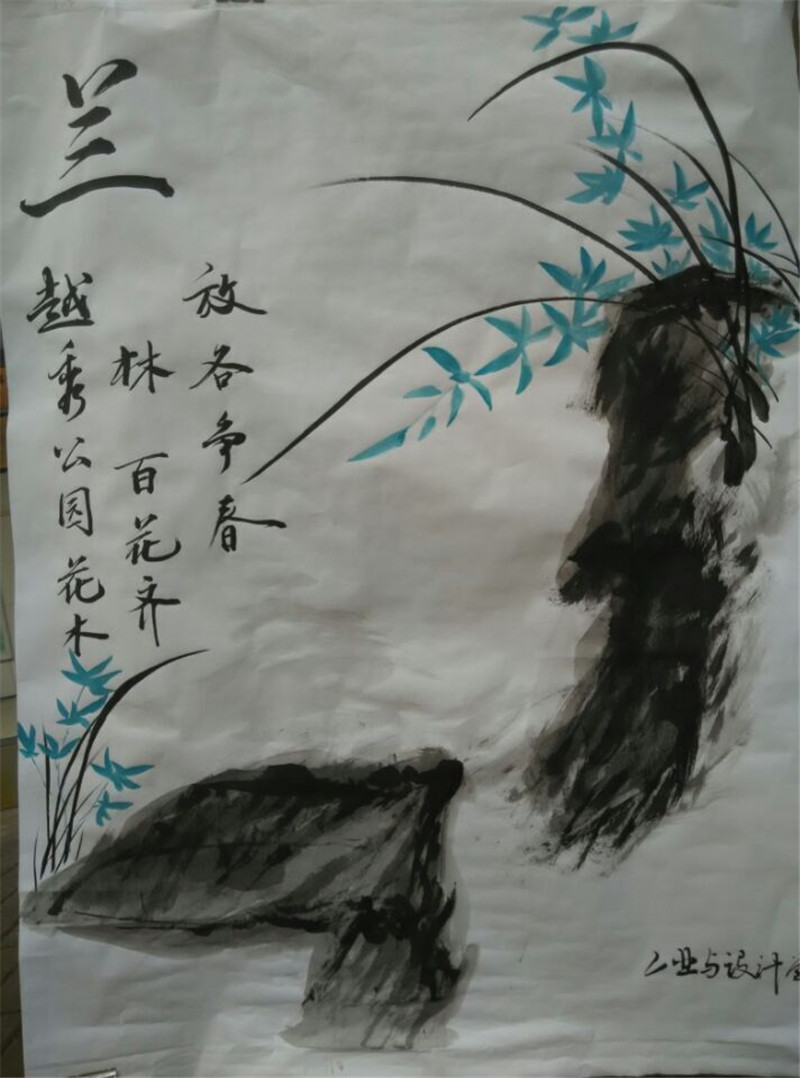 兰
越秀公园花木
林百花齐
放各争春
工业与设计